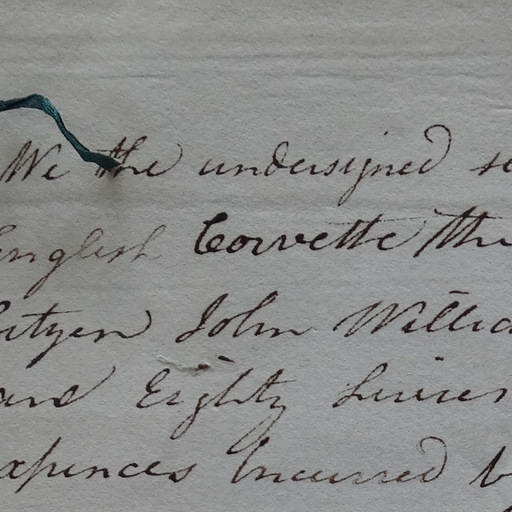 We the undersigned se
English Corvette the
ityen John Willia
and Eighty Livres
xpences Incurred b